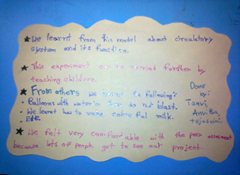 ★ We learnt from this model about circulatory
system and its function.
★ This experiment can be carried further by
teaching children.
★ From others we learnt the following?
• Balloons with water do not blast.
• We learnt how to make colorful milk.
• etc.
Done
by:
Tanvi,
★ We felt very comfortable with the peer assessment
because lots of people got to see our project